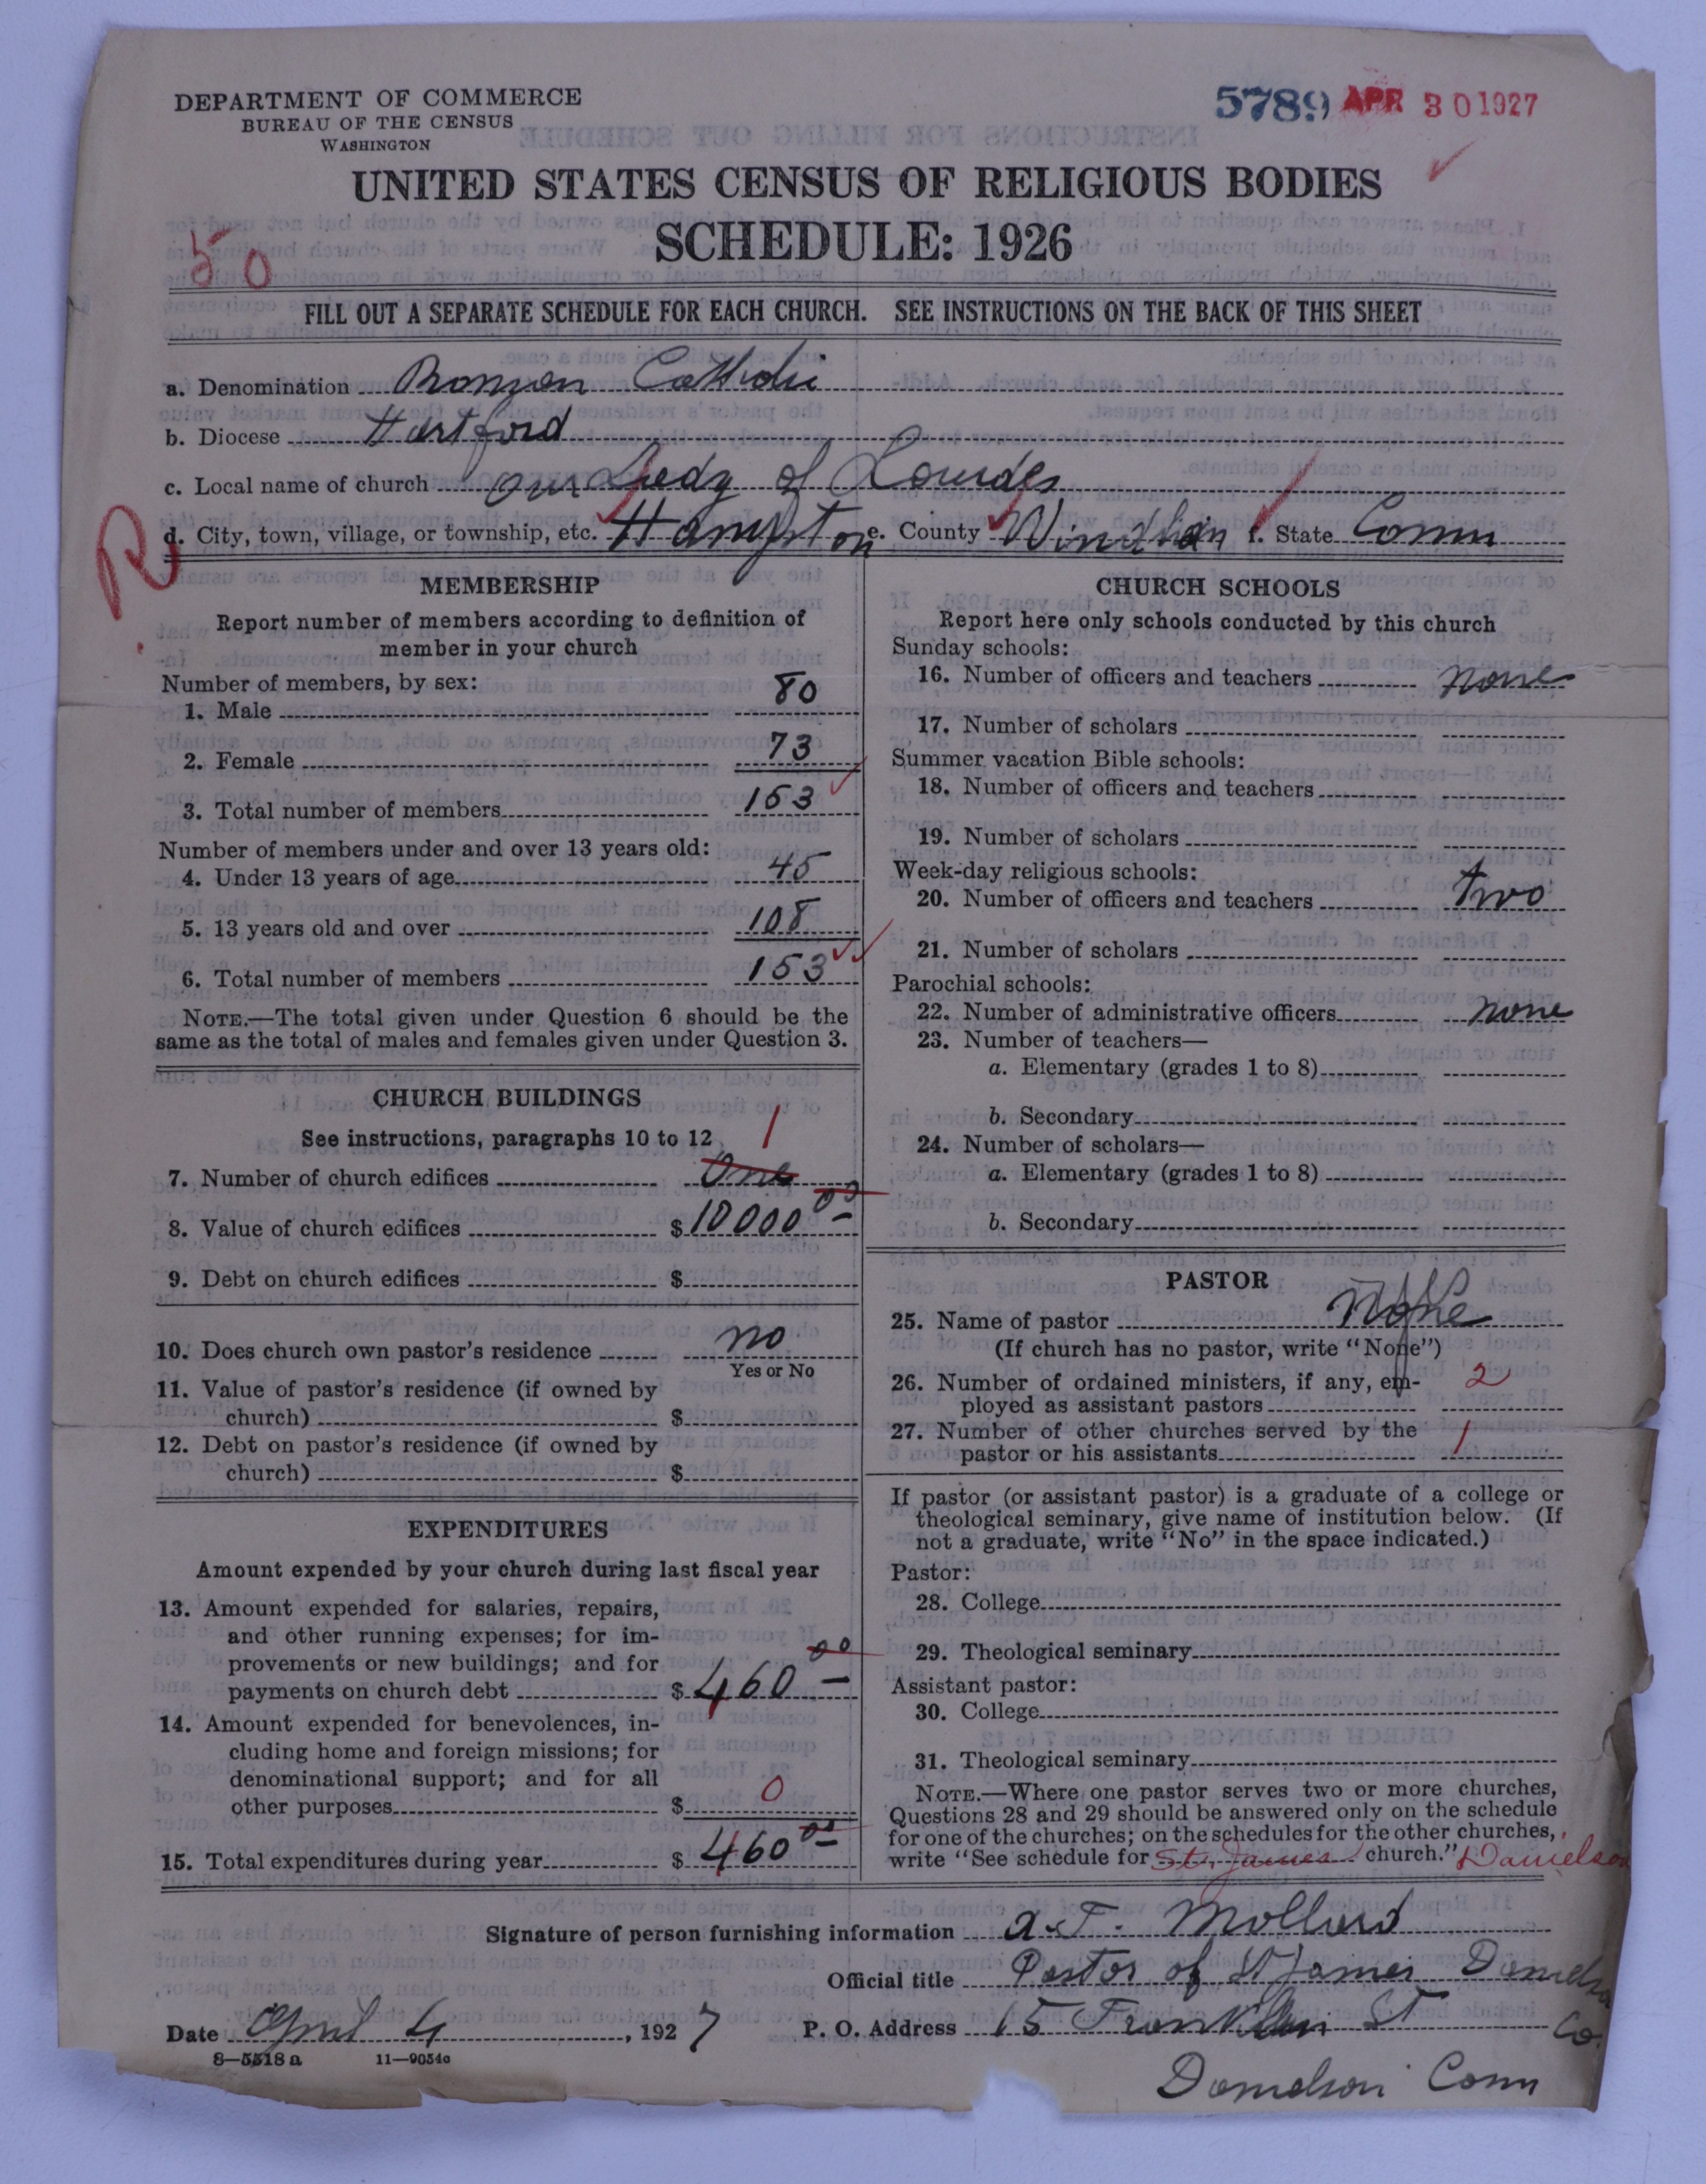 DEPARTMENT OF COMMERCE
BUREAU OF THE CENSUS
WASHINGTON
5789 APR 30 1927
UNITED STATES CENSUS OF RELIGIOUS BODIES
SCHEDULE: 1926
50
FILL OUT A SEPARATE SCHEDULE FOR EACH CHURCH. SEE INSTRUCTIONS ON THE BACK OF THIS SHEET
a. Denomination Roman Catholic
b. Diocese Hartford
c. Local name of church Our Lady of Lourdes
R
d. City, town, village, or township, etc. Hampton e. County Windham f. State Conn
MEMBERSHIP
Report number of members according to definition of
member in your church
Number of members, by sex:
1. Male 80
2. Female 73
3. Total number of members 153
Number of members under and over 13 years old:
4. Under 13 years of age 45
5. 13 years old and over 108
6. Total number of members 153
NOTE.—The total given under Question 6 should be the
same as the total of males and females given under Question 3.
CHURCH BUILDINGS
See instructions, paragraphs 10 to 12
1
7. Number of church edifices One
8. Value of church edifices $10000 00
9. Debt on church edifices $
10. Does church own pastor's residence no
Yes or No
11. Value of pastor's residence (if owned by
church) $
12. Debt on pastor's residence (if owned by
church) $
EXPENDITURES
Amount expended by your church during last fiscal year
13. Amount expended for salaries, repairs,
and other running expenses; for im-
provements or new buildings; and for
payments on church debt $460 00
14. Amount expended for benevolences, in-
cluding home and foreign missions; for
denominational support; and for all
other purposes $ 0
15. Total expenditures during year $ 460 00
CHURCH SCHOOLS
Report here only schools conducted by this church
Sunday schools:
16. Number of officers and teachers none
17. Number of scholars
Summer vacation Bible schools:
18. Number of officers and teachers
19. Number of scholars
Week-day religious schools:
20. Number of officers and teachers two
21. Number of scholars
Parochial schools:
22. Number of administrative officers none
23. Number of teachers—
a. Elementary (grades 1 to 8)
b. Secondary
24. Number of scholars—
a. Elementary (grades 1 to 8)
b. Secondary
PASTOR
25. Name of pastor None
(If church has no pastor, write "None")
26. Number of ordained ministers, if any, em-
ployed as assistant pastors 2
27. Number of other churches served by the
pastor or his assistants 1
If pastor (or assistant pastor) is a graduate of a college or
theological seminary, give name of institution below. (If
not a graduate, write "No" in the space indicated.)
Pastor:
28. College
29. Theological seminary
Assistant pastor:
30. College
31. Theological seminary
NOTE.—Where one pastor serves two or more churches,
Questions 28 and 29 should be answered only on the schedule
for one of the churches; on the schedules for the other churches,
write "See schedule for St. James church." Danielson
Signature of person furnishing information a. T. Mollurd
Official title Pastor of St James Danielson
Date April 4, 1927
P. O. Address 15 Franklin St Co.
Danielson Conn
8—5518 a 11—9054c